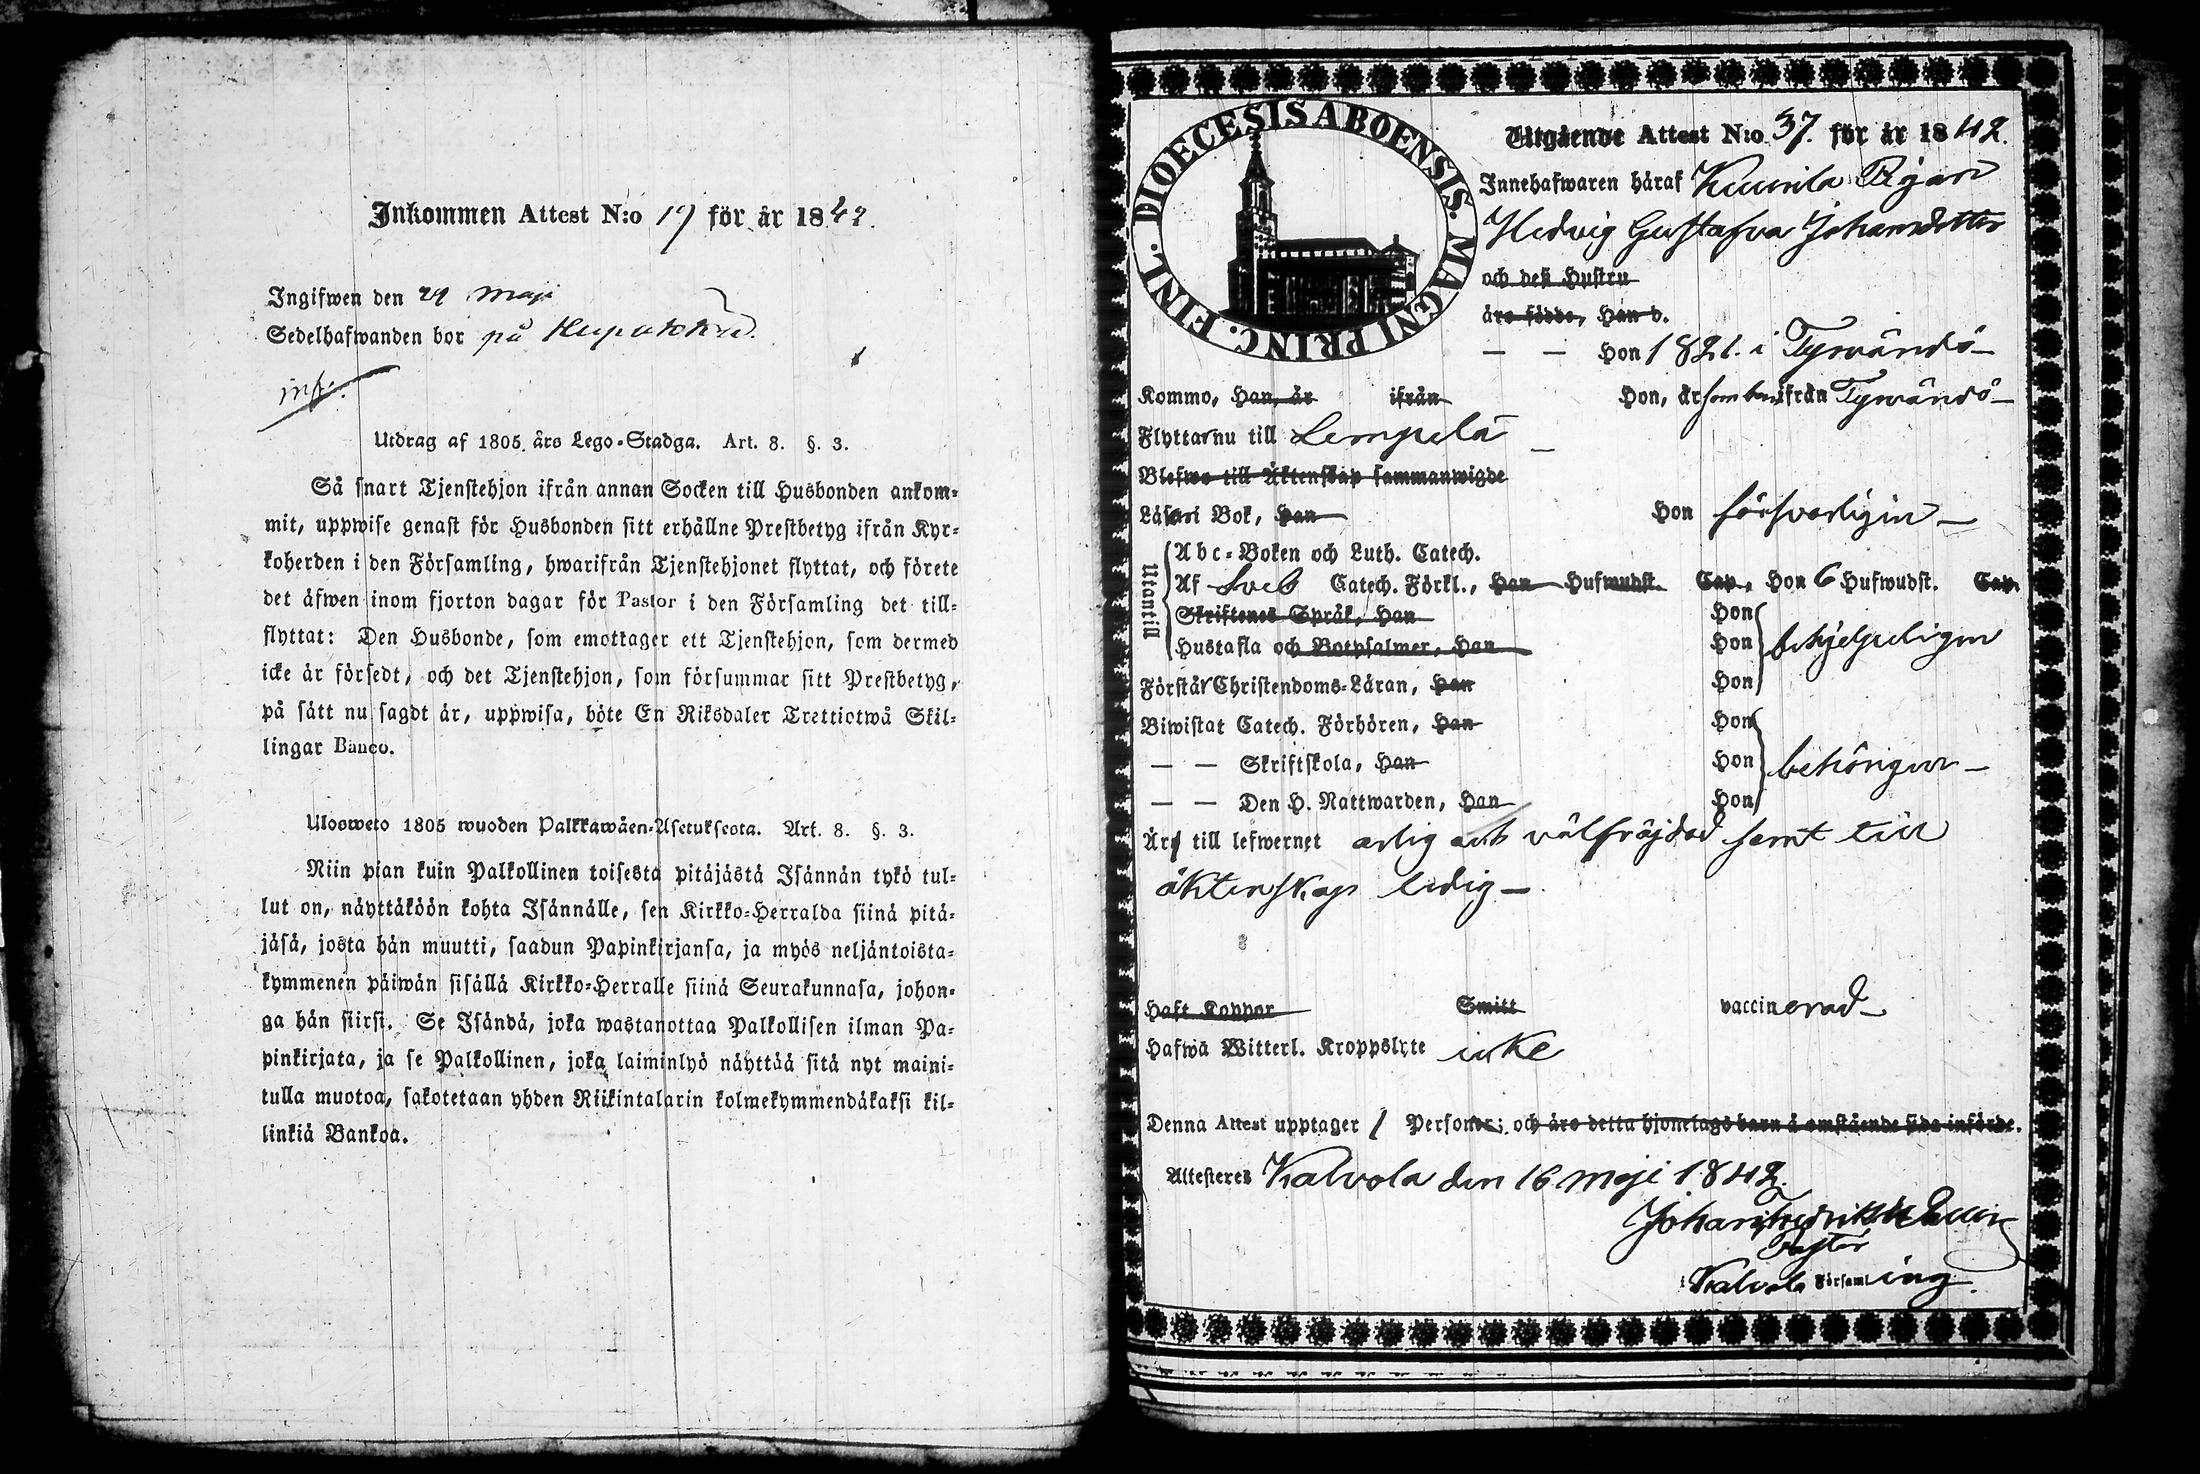 Inkommen Attest N:o 19 för år 1842.
Ingifwen den 29 Maji
Sedelhafwanden bor på
inf:
Utdrag af 1805 års Lego-Stadga. Art. 8. §. 3.
Så snart Tjenstehjon ifrån annan Socken till Husbonden ankom-
mit, uppwise genast för Husbonden sitt erhållne Prestbetyg ifrån Kyr-
koherden i den Församling, hwarifrån Tjenstehjonet flyttat, och förete
det äfwen inom fjorton dagar för Pastor i den Församling det till-
flyttat: Den Husbonde, som emottager ett Tjenstehjon, som dermed
icke är försedt, och det Tjenstehjon, som försummar sitt Prestbetyg,
på sätt nu sagdt är, uppwisa, böte En Riksdaler Trettiotwå Skil-
lingar Banco.
Ulosweto 1805 wuoden Palkkawäen-Asetuksesta. Art. 8. §. 3.
Niin pian kuin Palkollinen toisesta pitäjästä Isännän tykö tul-
lut on, näyttäköön kohta Isännälle, sen Kirkko-Herralda siinä pitä-
jäsä, josta hän muutti, saadun Papinkirjansa, ja myös neljäntoista-
kymmenen päiwän sisällä Kirkko-Herralle siinä Seurakunnasa, johon-
ga hän siirsi. Se Isändä, joka wastanottaa Palkollisen ilman Pa-
pinkirjata, ja se Palkollinen, joka laiminlyö näyttää sitä nyt maini-
tulla muotoa, sakotetaan yhden Riikintalarin kolmekymmendäkaksi kil-
linkiä Bankoa.
DIOECESIS ABOENSIS. MAGNI PRINC. FINL.
Utgående Attest N:o 37. för år 1842.
Innehafwaren häraf Kuurila Pigan
Hedvig Gustafva Johansdotter
och deß Hustru
äro födde, Han d.
— — Hon 1821. i Tyrvändö
Kommo, Han, år ifrån Hon, år som barn ifrån Tyrvändö
Flyttar nu till Lempelä
Blefwo till Äktenskap sammanwigde
Läser i Bok, Han Hon försvarligen
Utantill
Abc-Boken och Luth. Catech.
Af Sveb Catech. Förkl., Han Hufwudst. Cap., Hon 6 Hufwudst. Cap.
Skriftenes Språk, Han Hon
Hustafla och Botpsalmer, Han Hon behjelpeligen
Förstår Christendoms-Läran, Han Hon
Biwistat Catech. Förhören, Han Hon
— — Skriftskola, Han Hon behörigen
— — Den H. Nattwarden, Han Hon
Är till lefwernet ärlig och välfräjdad samt till
äktenskap ledig
Haft Koppor Smitt vaccinerad
Hafwa Witterl. Kroppslyte icke
Denna Attest upptager 1 Personer; och äro detta hjonelags barn å omstående sida införde.
Attesteres Kalvola den 16 Maji 1842.
Johan Fredrik
Pastor
i Kalvola Församling.